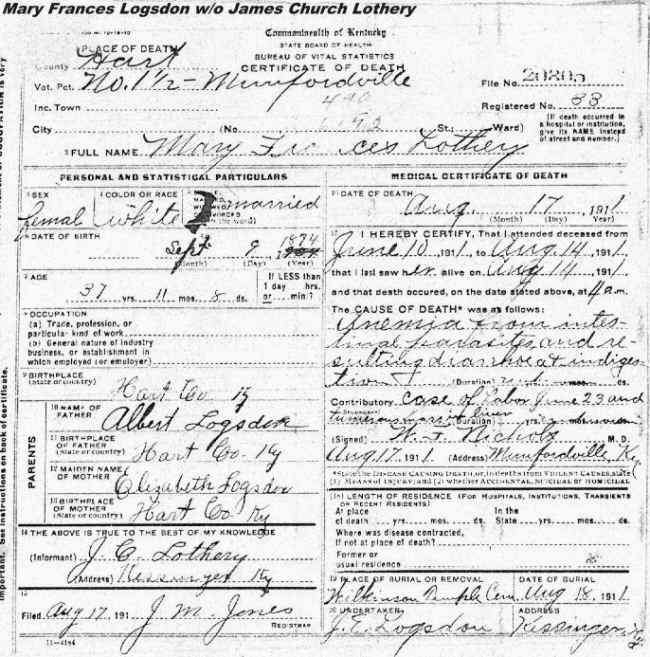 Mary Frances Logsdon w/o James Church Lothery
Commonwealth of Kentucky
STATE BOARD OF HEALTH
BUREAU OF VITAL STATISTICS
CERTIFICATE OF DEATH
PLACE OF DEATH
County Hart
Vot. Pct. No. 1 1/2 - Munfordville
File No. 20805
Inc. Town
Registered No. 33
City (No. St.; Ward)
(If death occurred in a hospital or institution, give its NAME instead of street and number.)
FULL NAME Mary Frances Lothery
PERSONAL AND STATISTICAL PARTICULARS
SEX
female
COLOR OR RACE
white
married
DATE OF BIRTH
Sept 9
(Month) (Day) (Year)
AGE
37 yrs. 11 mos. 8 ds.
If LESS than 1 day hrs. or min?
OCCUPATION
(a) Trade, profession, or particular kind of work
(b) General nature of industry business, or establishment in which employed (or employer)
BIRTHPLACE
(State or country)
Hart Co Ky
PARENTS
10 NAME OF FATHER
Albert Logsdon
11 BIRTHPLACE OF FATHER
(State or country)
Hart Co. Ky
12 MAIDEN NAME OF MOTHER
Elizabeth Logsdon
13 BIRTHPLACE OF MOTHER
(State or country)
Hart Co Ky
14 THE ABOVE IS TRUE TO THE BEST OF MY KNOWLEDGE
(Informant) J. C. Lothery
(Address) Kessinger Ky
15
Filed Aug 17 191 J. M. Jones
REGISTRAR
11-4184
MEDICAL CERTIFICATE OF DEATH
DATE OF DEATH
Aug. 17, 1911
(Month) (Day) (Year)
I HEREBY CERTIFY, That I attended deceased from
June 10 1911, to Aug. 14 1911,
that I last saw her alive on Aug 14, 1911
and that death occurred, on the date stated above, at 4 a.m.
The CAUSE OF DEATH* was as follows:
Anemia from intes-
tinal parasites and re-
sulting diarrhoea & indiges-
tion
(Duration) mos. ds.
Contributory case of labor June 23 and
liver (Duration) yrs.
(Signed) M. D.
Aug. 17, 1911 (Address) Munfordville Ky
*State the DISEASE CAUSING DEATH, or, in deaths from VIOLENT CAUSES, state (1) MEANS OF INJURY; and (2) whether ACCIDENTAL, SUICIDAL OR HOMICIDAL
LENGTH OF RESIDENCE (FOR HOSPITALS, INSTITUTIONS, TRANSIENTS OR RECENT RESIDENTS)
At place of death yrs. mos. ds. In the State yrs. mos. ds.
Where was disease contracted, if not at place of death?
Former or usual residence
19 PLACE OF BURIAL OR REMOVAL
Wilkinson Temple Cem.
DATE OF BURIAL
Aug 18, 1911
UNDERTAKER
J. E. Logsdon
ADDRESS
Kessinger
important. See instructions on back of certificate.